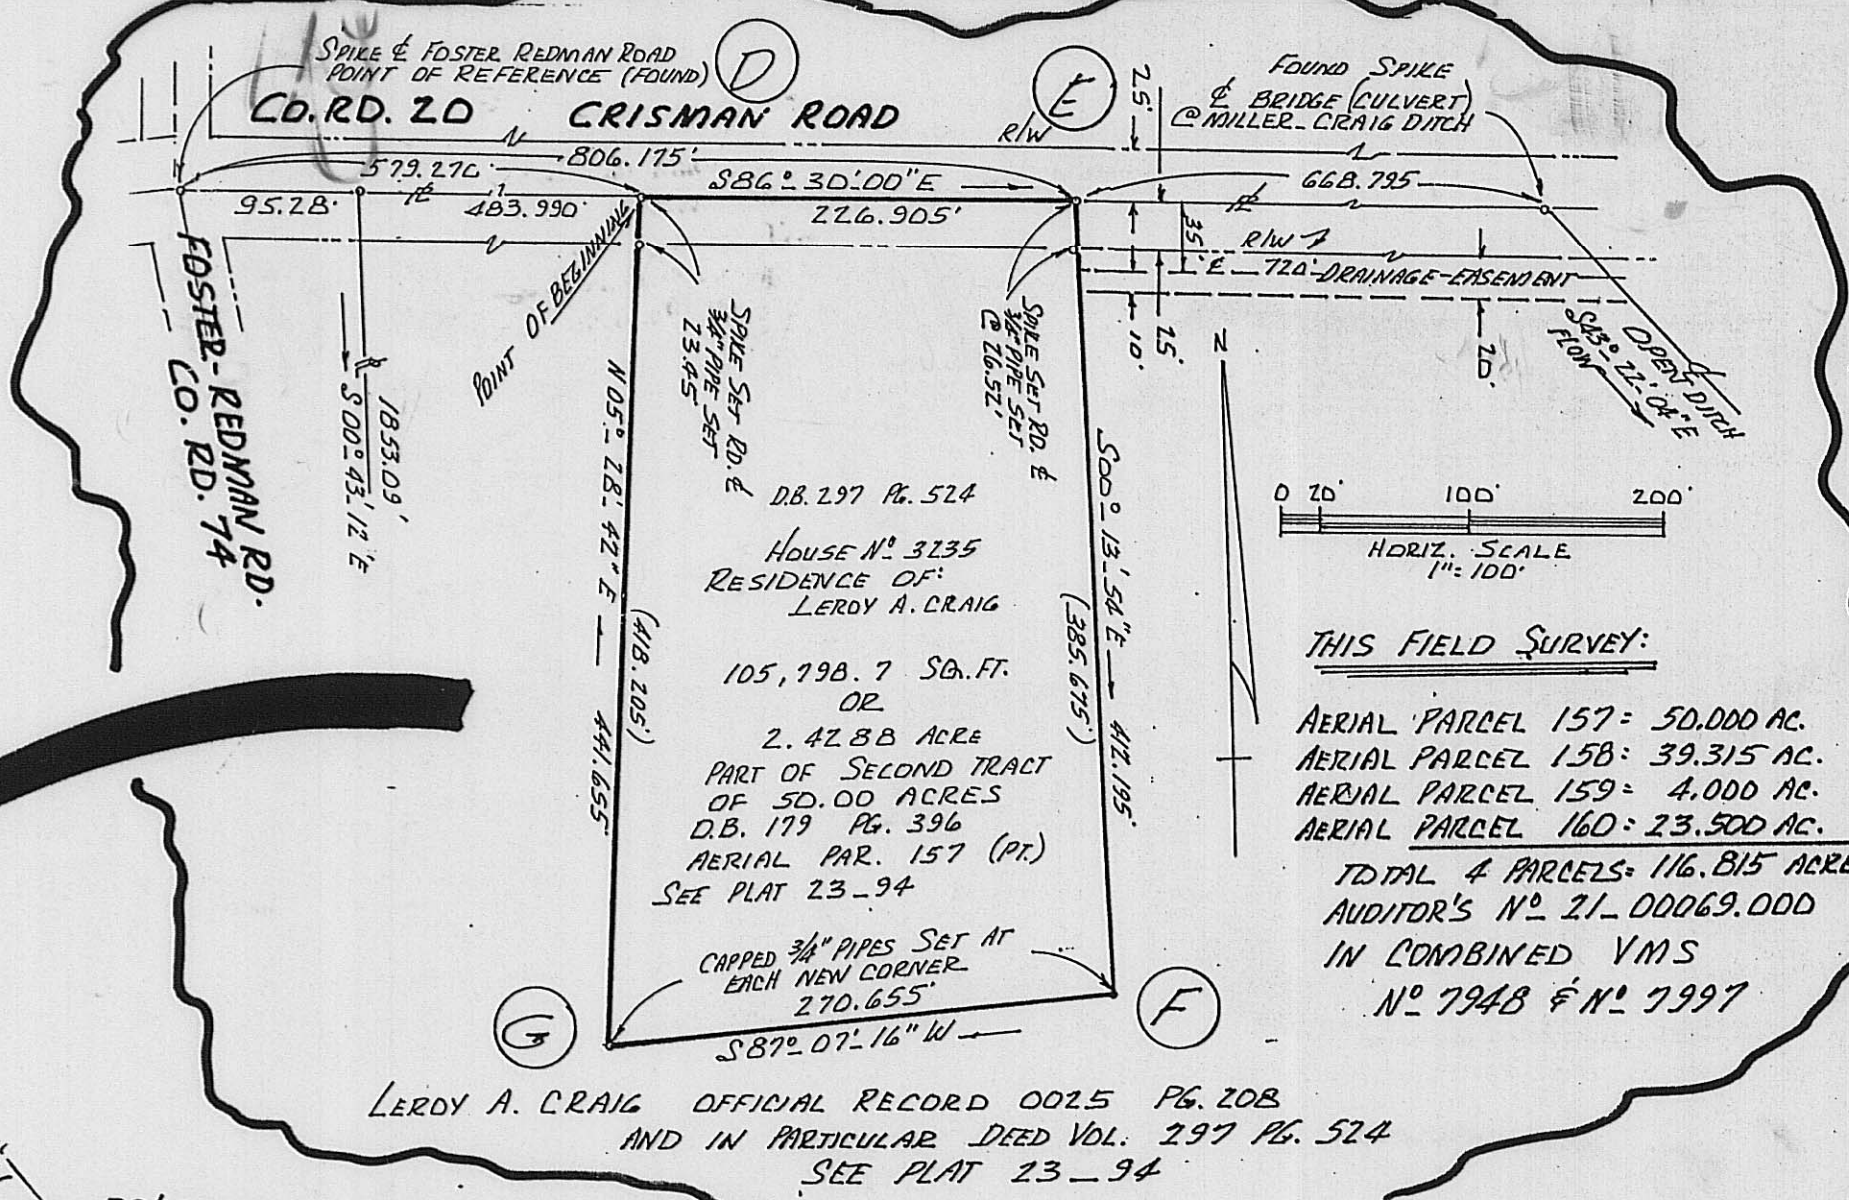 SPIKE ℄ FOSTER REDMAN ROAD
POINT OF REFERENCE (FOUND)
D
E
25'
FOUND SPIKE
℄ BRIDGE (CULVERT)
@ MILLER-CRAIG DITCH
CO. RD. 20 CRISMAN ROAD
R/W
806.175'
579.270'
S86°-30'-00"E
668.795
95.28'
℄
483.990'
226.905'
℄
35'
R/W
℄ 720' DRAINAGE-EASEMENT
25'
10'
20'
POINT OF BEGINNING
FOSTER-REDMAN RD.
CO. RD. 74
1853.09'
S00°-43'-12"E
SPIKE SET RD. ℄
3/4" PIPE SET
23.45'
SPIKE SET RD. ℄
3/4" PIPE SET
@ 26.52'
℄
OPEN DITCH
S43°-22'-04"E
FLOW
N
N05°-28'-42"E
441.655'
(418.205')
S00°-13'-54"E
412.195'
(385.675')
D.B. 297 PG. 524
HOUSE Nº 3235
RESIDENCE OF:
LEROY A. CRAIG
105,798.7 SQ. FT.
OR
2.4288 ACRE
PART OF SECOND TRACT
OF 50.00 ACRES
D.B. 179 PG. 396
AERIAL PAR. 157 (PT.)
SEE PLAT 23-94
CAPPED 3/4" PIPES SET AT
EACH NEW CORNER
270.655'
S87°-07'-16"W
G
F
0 20' 100' 200'
HORIZ. SCALE
1"= 100'
THIS FIELD SURVEY:
AERIAL PARCEL 157= 50.000 AC.
AERIAL PARCEL 158= 39.315 AC.
AERIAL PARCEL 159= 4.000 AC.
AERIAL PARCEL 160= 23.500 AC.
TOTAL 4 PARCELS= 116.815 ACRE
AUDITOR'S Nº 21-00069.000
IN COMBINED VMS
Nº 7948 & Nº 7997
LEROY A. CRAIG OFFICIAL RECORD 0025 PG. 208
AND IN PARTICULAR DEED VOL. 297 PG. 524
SEE PLAT 23-94